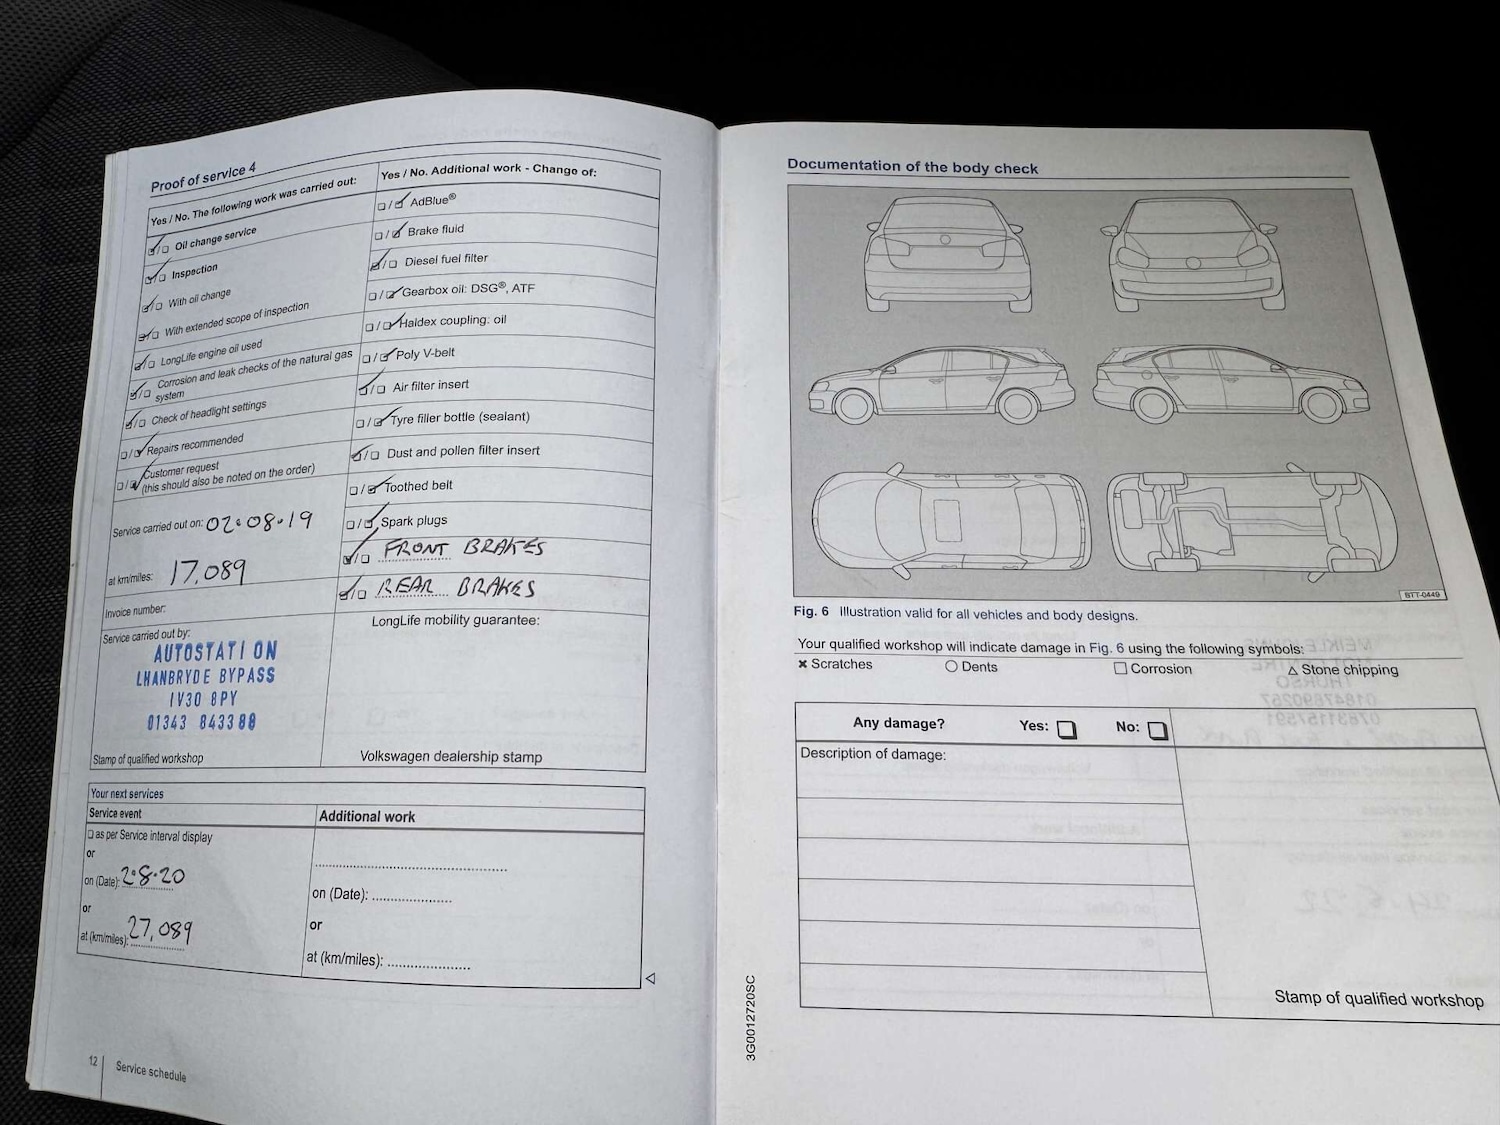 Proof of service 4
Yes / No. The following work was carried out:
Oil change service
Inspection
With oil change
With extended scope of inspection
LongLife engine oil used
Corrosion and leak checks of the natural gas
system
Check of headlight settings
Repairs recommended
Customer request
(this should also be noted on the order)
Service carried out on: 02.08.19
at km/miles: 17,089
Invoice number:
Service carried out by:
AUTOSTATION
LHANBRYDE BYPASS
IV30 8PY
01343 843388
Stamp of qualified workshop
Yes / No. Additional work - Change of:
AdBlue®
Brake fluid
Diesel fuel filter
Gearbox oil: DSG®, ATF
Haldex coupling: oil
Poly V-belt
Air filter insert
Tyre filler bottle (sealant)
Dust and pollen filter insert
Toothed belt
Spark plugs
FRONT BRAKES
REAR BRAKES
LongLife mobility guarantee:
Volkswagen dealership stamp
Your next services
Service event
as per Service interval display
or
on (Date): 2.8.20
or
at (km/miles): 27,089
Additional work
on (Date):
or
at (km/miles):
12
Service schedule
Documentation of the body check
BTT-0449
Fig. 6 Illustration valid for all vehicles and body designs.
Your qualified workshop will indicate damage in Fig. 6 using the following symbols:
× Scratches
○ Dents
□ Corrosion
△ Stone chipping
Any damage? Yes: No:
Description of damage:
Stamp of qualified workshop
3G0012720SC